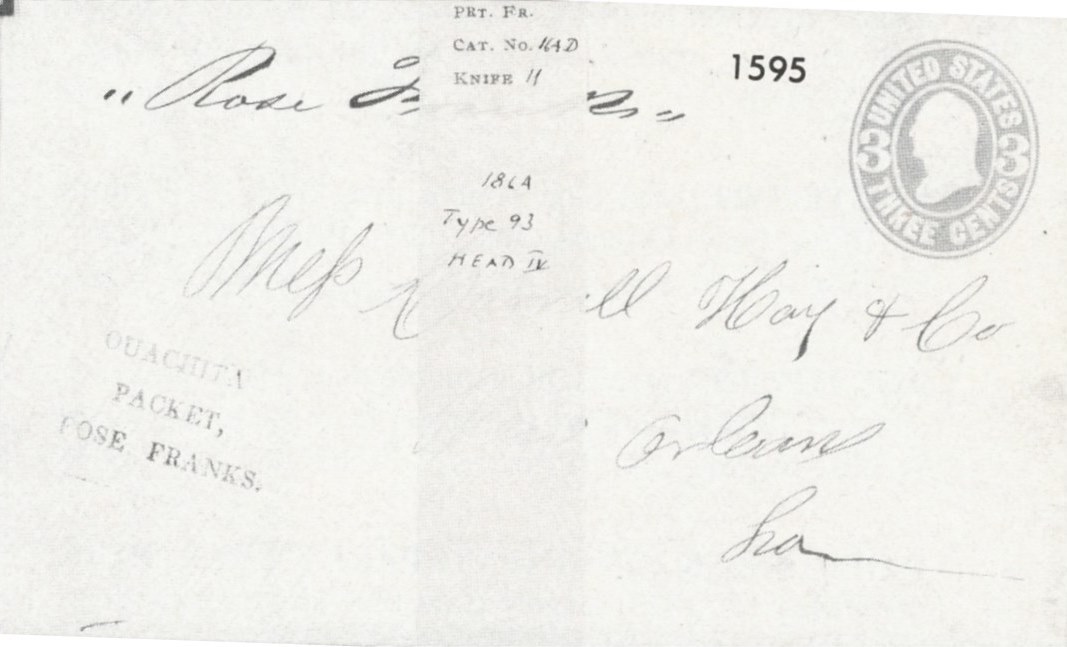 PRT. FR.
CAT. No. 164D
KNIFE 11
1595
"Rose
UNITED STATES
3 3
THREE CENTS
1864
Type 93
HEAD IV
Mess
ll Hay & Co
Orleans
Loa
OUACHITA
PACKET,
ROSE FRANKS.